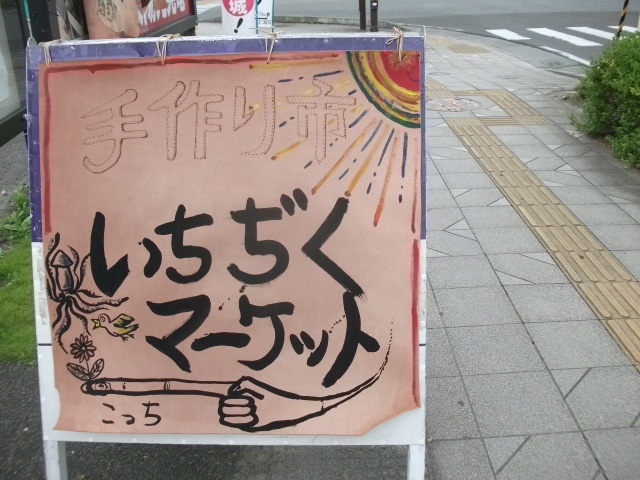 手作り市
いちぢく
マーケット
こっち